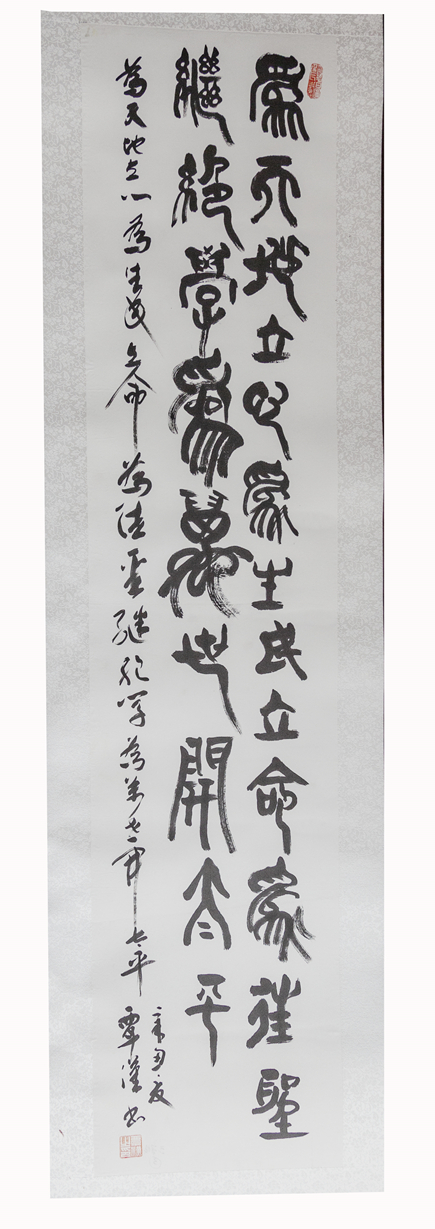 為天地立心為生民立命為往聖
繼絕學為萬世開太平
為天地立心為生民立命為往聖繼絕學為萬世開太平
辛丑夏
覃漢书